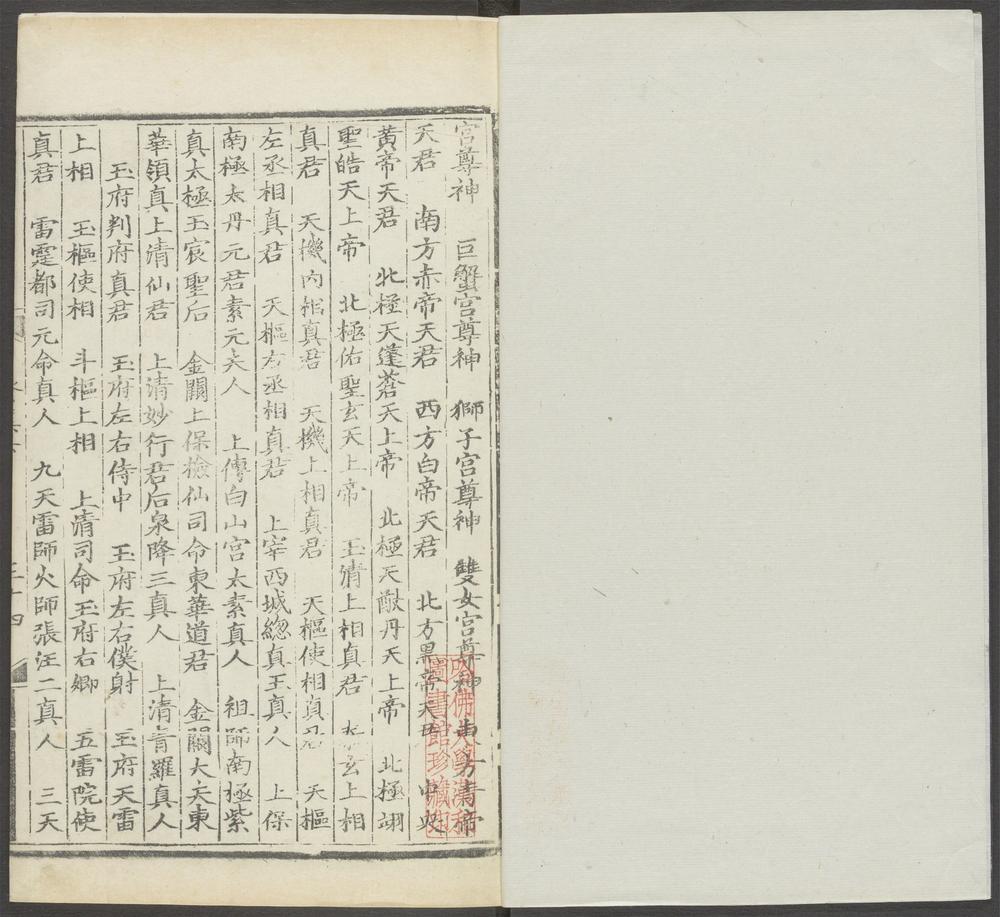 宮尊神　巨蟹宮尊神　獅子宮尊神　雙女宮尊神　東方青帝
天君　南方赤帝天君　西方白帝天君　北方黑帝天君　中央
黄帝天君　北極天蓬蒼天上帝　北極天猷丹天上帝　北極翊
聖皓天上帝　北極佑聖玄天上帝　玉清上相真君　玄上相
真君　天機內相真君　天機上相真君　天樞使相真君　天樞
左丞相真君　天樞右丞相真君　上宰西城緫真王真人　上保
南極太丹元君素元夫人　上傳白山宮太素真人　祖師南極紫
真太極玉宸聖后　金闕上保檢仙司命東華道君　金闕大夫東
華領真上清仙君　上清妙行君后泉降三真人　上清青羅真人
玉府判府真君　玉府左右侍中　玉府左右僕射　玉府天雷
上相　玉樞使相　斗樞上相　上清司命玉府右卿　五雷院使
真君　雷霆都司元命真人　九天雷師火師張汪二真人　三天
三十四
哈佛大學漢和
圖書館珍藏印